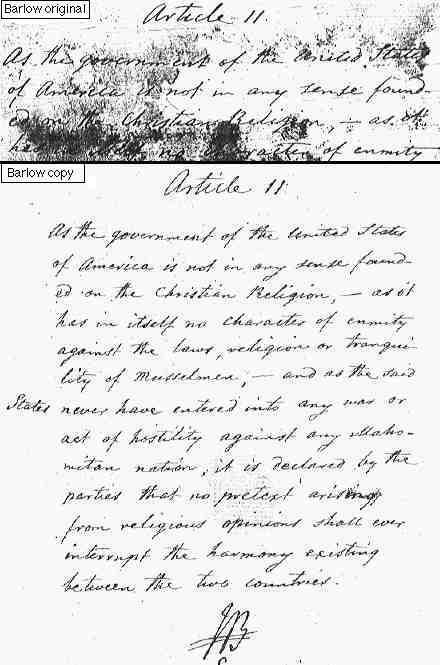 Barlow original
Article 11.
As the government of the United States
of America is not in any sense found-
ed on the Christian Religion, — as it
has in itself no character of enmity
Barlow copy
Article 11
As the government of the United States
of America is not in any sense found-
ed on the Christian Religion, — as it
has in itself no character of enmity
against the laws, religion or tranqui-
lity of Musselmen, — and as the said
States never have entered into any war or
act of hostility against any Maho-
mitan nation, it is declared by the
parties that no pretext arising
from religious opinions shall ever
interrupt the harmony existing
between the two countries.
JB